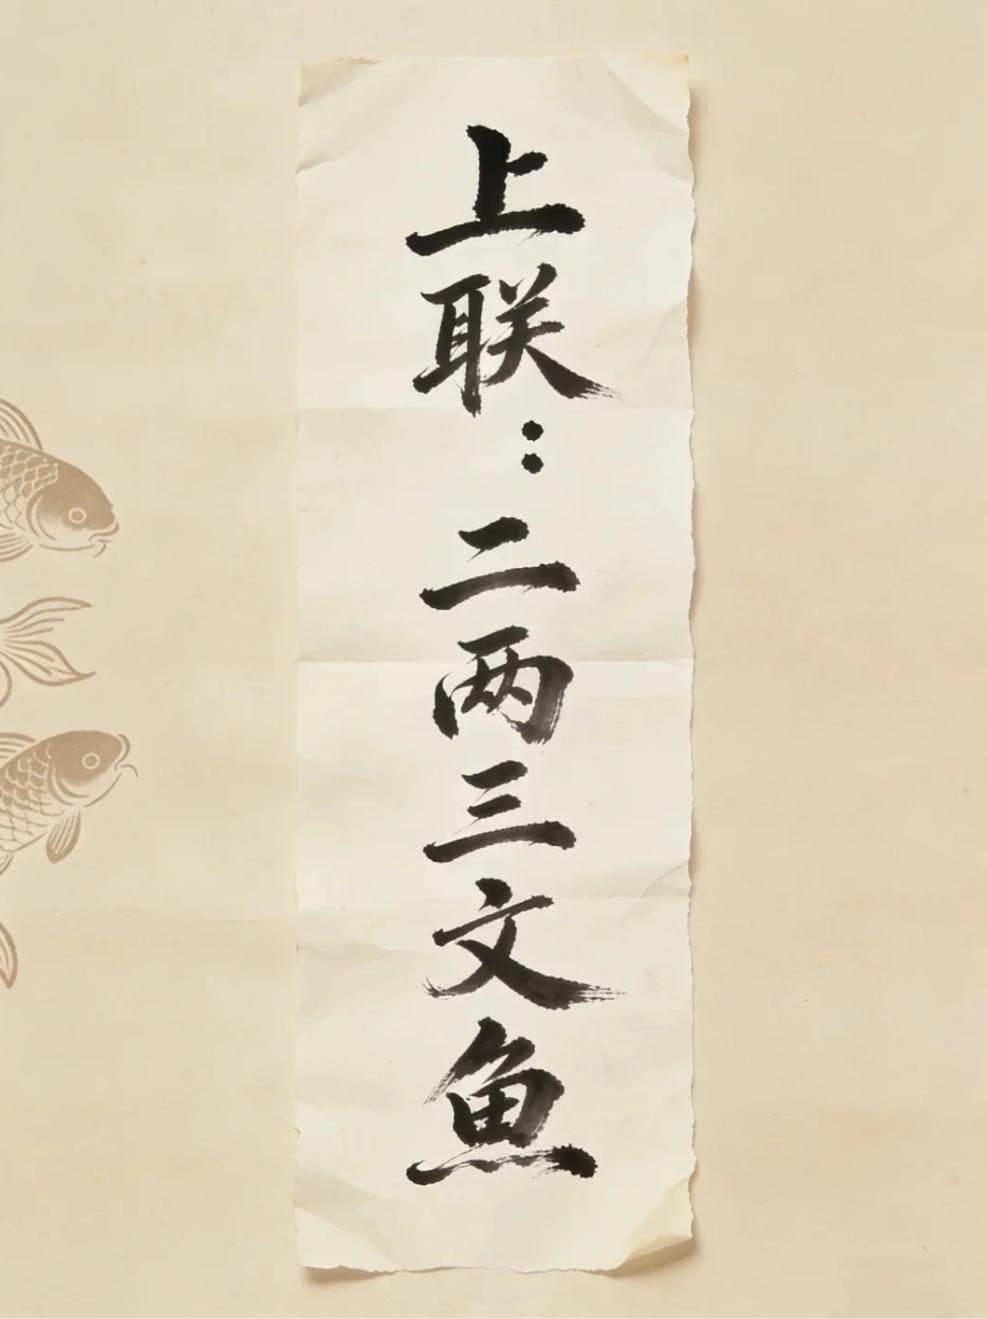 上联：二两三文魚